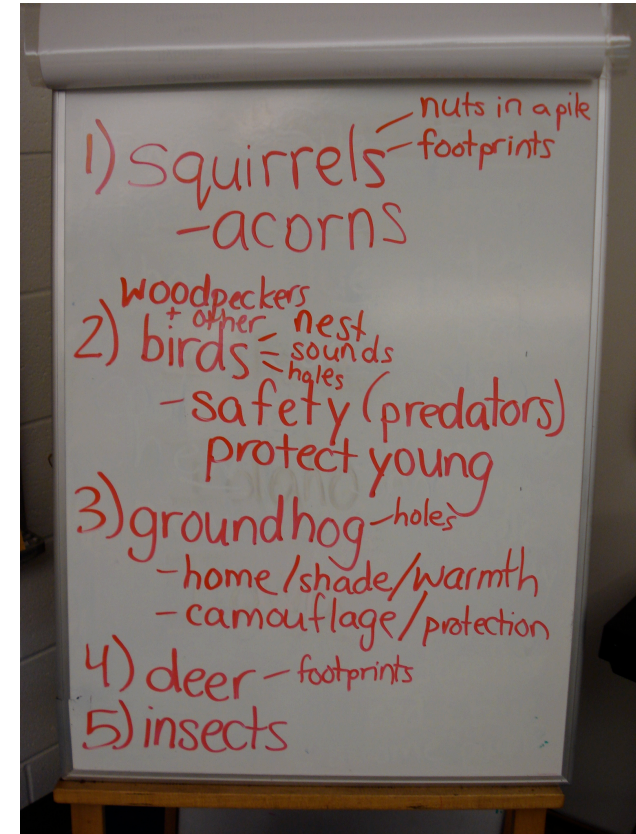 nuts in a pile
1) squirrels - footprints
- acorns
woodpeckers
+ other
2) birds - nest
- sounds
- holes
- safety (predators)
protect young
3) groundhog - holes
- home/shade/warmth
- camouflage/protection
4) deer - footprints
5) insects